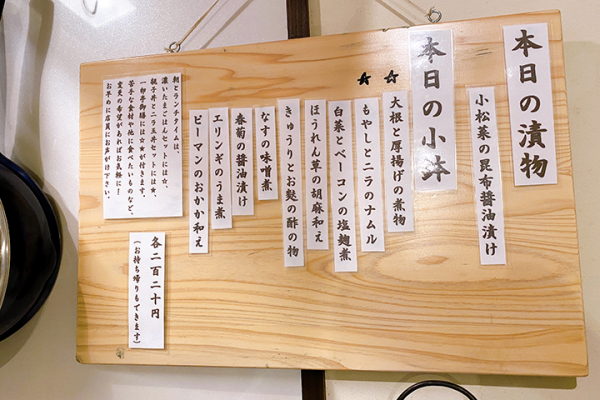 本日の漬物
小松菜の昆布醤油漬け
本日の小鉢
★ ☆
大根と厚揚げの煮物
もやしとニラのナムル
白菜とベーコンの塩麹煮
ほうれん草の胡麻和え
きゅうりとお麩の酢の物
なすの味噌煮
春菊の醤油漬け
エリンギのうま煮
ピーマンのおかか和え
朝とランチタイムは、
濃いたまごはんセットには☆、
親子丼とニラ玉丼セットには★、
一卵亭御膳には☆★が付きます。
苦手な食材や他に食べたいものなど、
変更の希望があればお気軽に！
お早めに店員にお声がけ下さい。
各二百二十円
（お持ち帰りもできます）